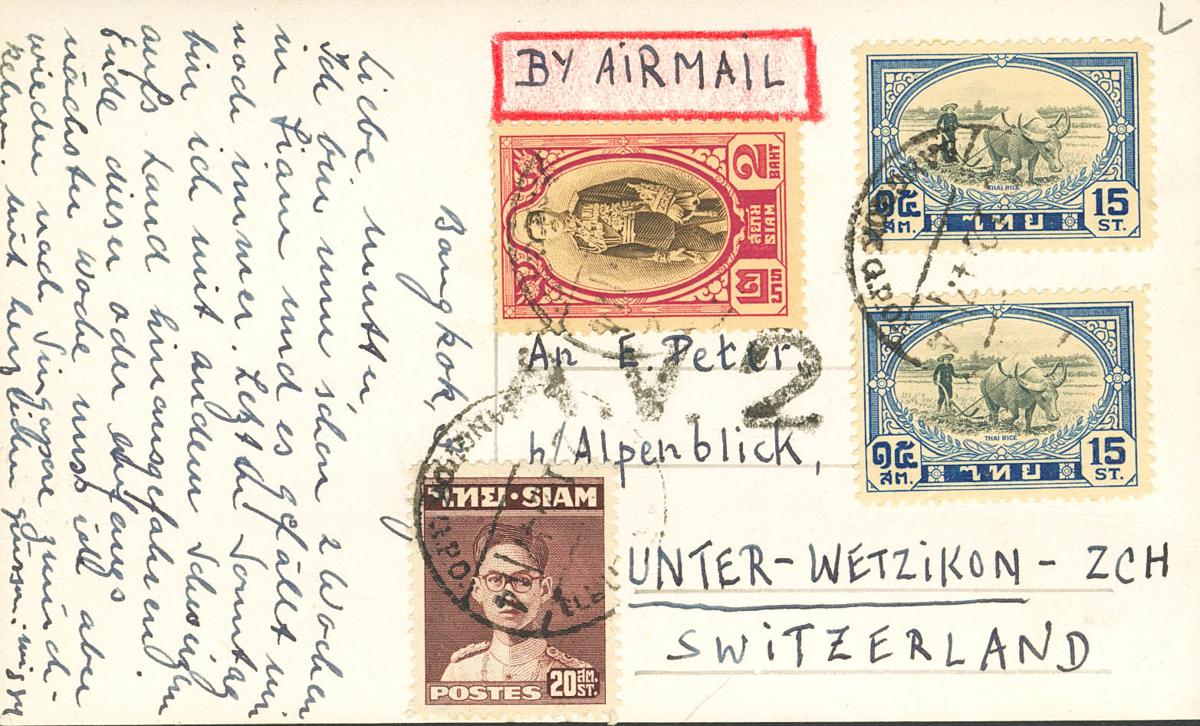 Bangkok,
Liebe Mutter,
Ich bin nun schon 2 Wochen
in Siam und es gefällt mir
noch immer. Letzte Sonntag
bin ich mit andern Schweizern
aufs Land hinausgefahren.
Ende dieser oder anfangs
nächster Woche muss ich aber
wieder nach Singapore zurück-
kehren. mit herzlichen grüssen.
BY AIRMAIL
2 BAHT
สยาม
SIAM
๒ บาท
THAI RICE
๑๕ สต.
ไทย
15 ST.
THAI RICE
๑๕ สต.
ไทย
15 ST.
A.V. 2
An E. Peter
h/Alpenblick,
BANGKOK G.P.O.
BANGKOK G.P.O.
ไทย • SIAM
POSTES
20 สต. ST.
UNTER-WETZIKON - ZCH
SWITZERLAND